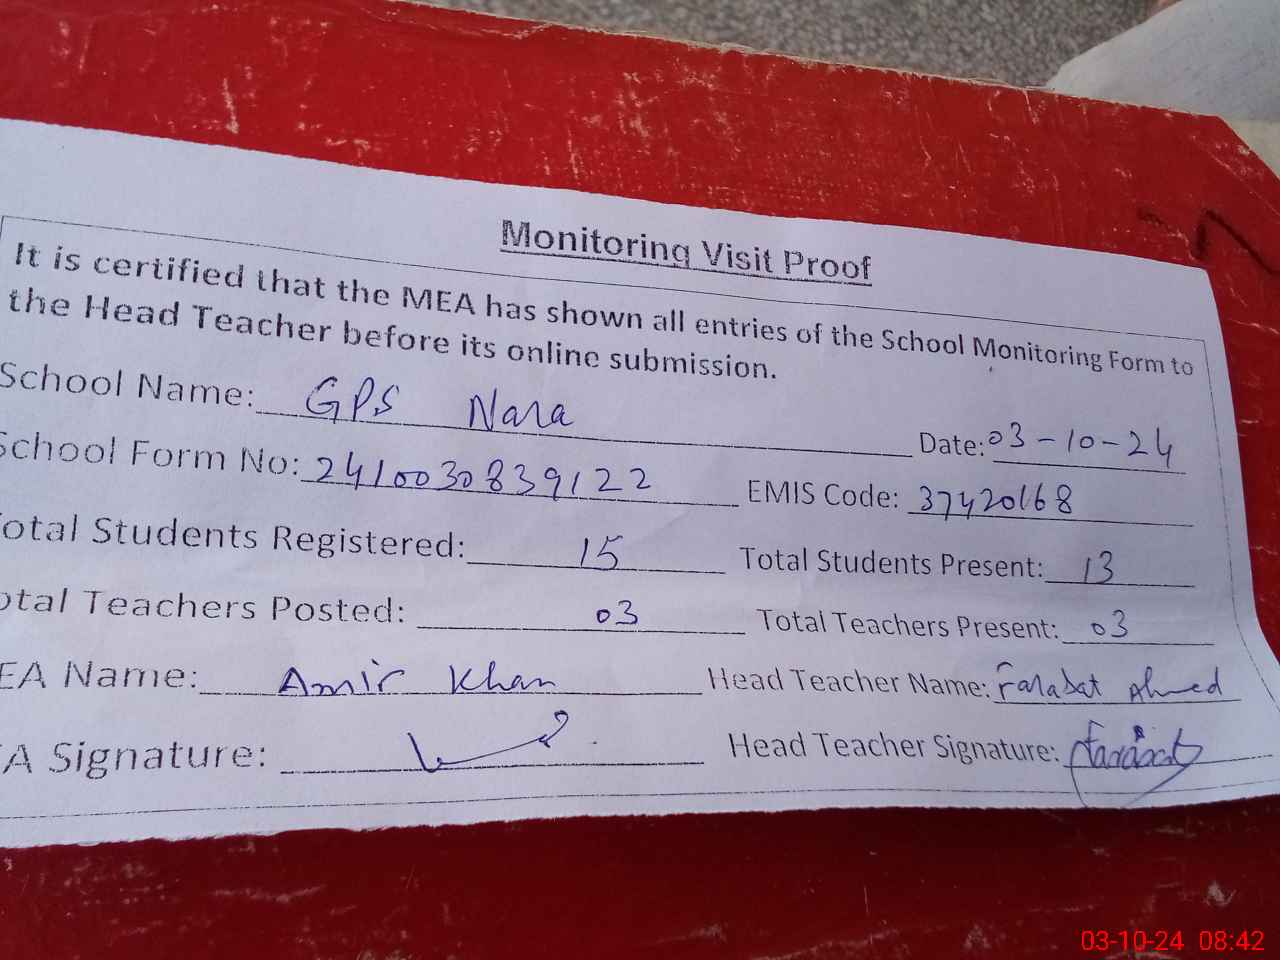 Monitoring Visit Proof
It is certified that the MEA has shown all entries of the School Monitoring Form to
the Head Teacher before its online submission.
School Name: GPS Nara Date: 03-10-24
School Form No: 2410030839122 EMIS Code: 37420168
otal Students Registered: 15 Total Students Present: 13
otal Teachers Posted: 03 Total Teachers Present: 03
EA Name: Amir Khan Head Teacher Name: Farasat Ahmed
A Signature: Head Teacher Signature:
03-10-24 08:42